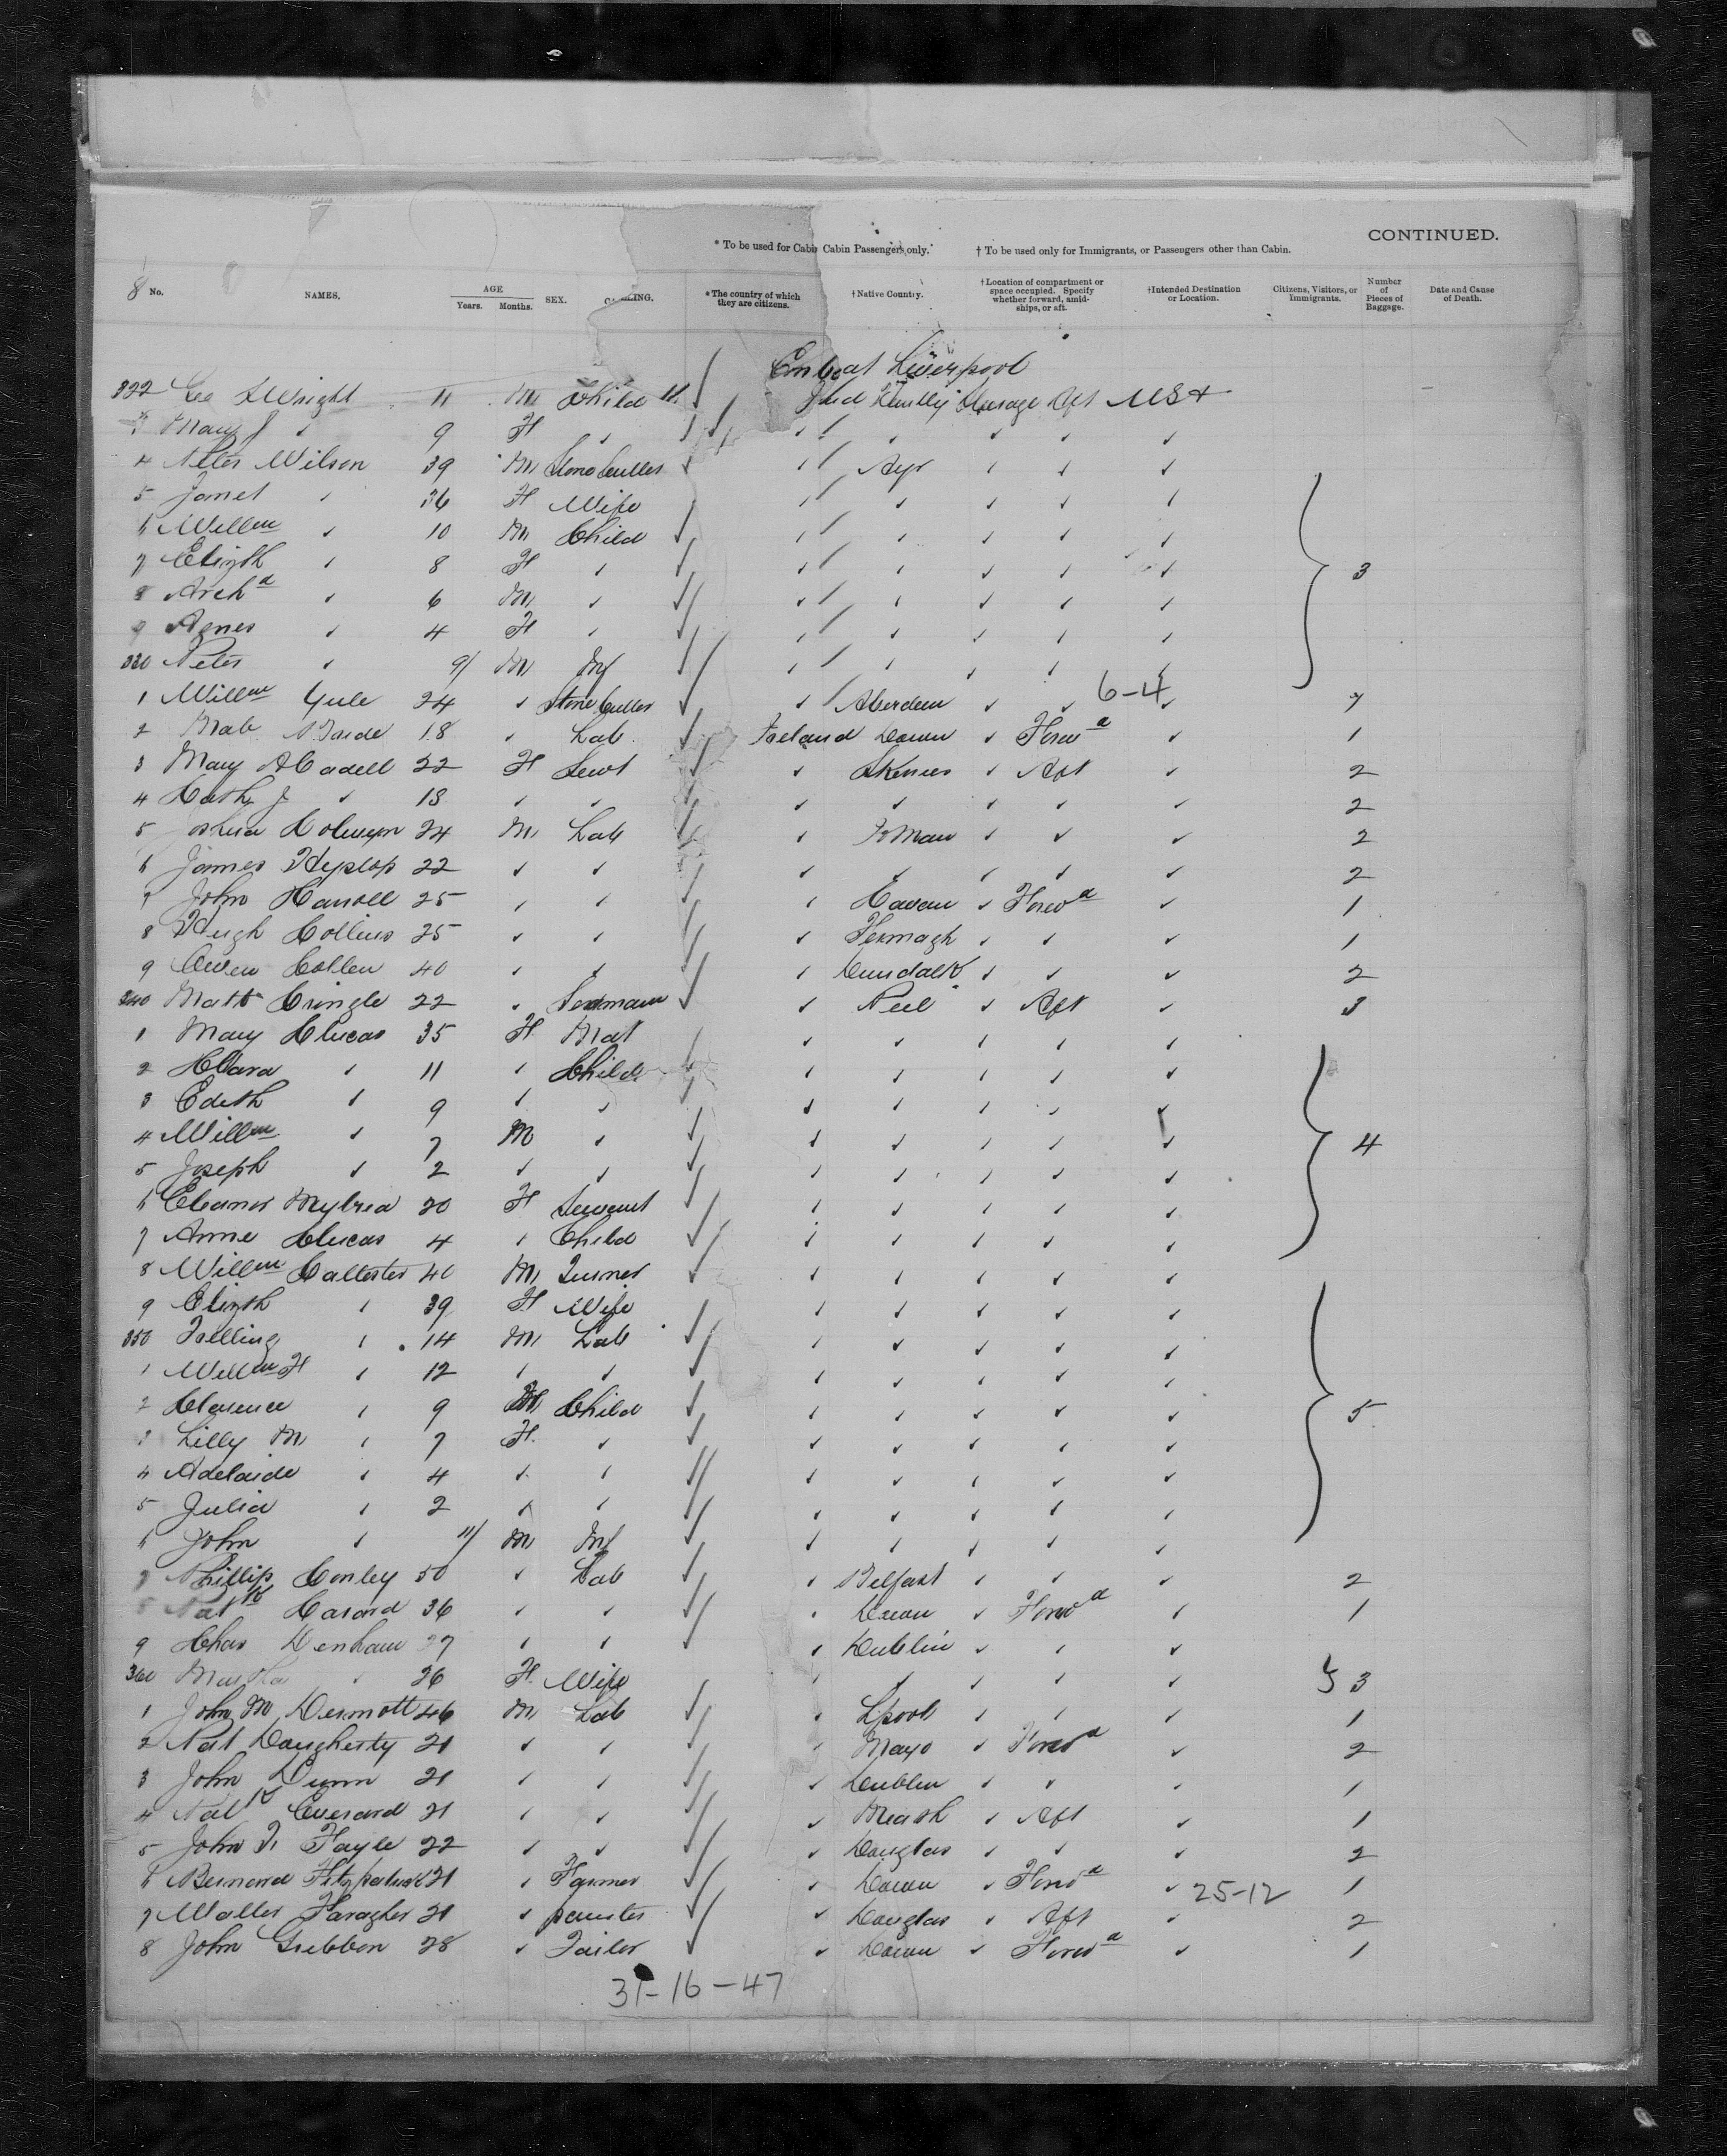 CONTINUED.
* To be used for Cabin Cabin Passengers only. † To be used only for Immigrants, or Passengers other than Cabin.
8 No. NAMES. AGE Years. Months. SEX. CALLING. *The country of which they are citizens. †Native Country. †Location of compartment or space occupied. Specify whether forward, amidships, or aft. †Intended Destination or Location. Citizens, Visitors, or Immigrants. Number of Pieces of Baggage. Date and Cause of Death.
Emb at Liverpool
322 Geo Wright 11 M Child Steerage Aft USA
3 Mary J " 9 F "
4 Peter Wilson 39 M Stone Cutter " Ayr " " "
5 Janet " 36 F Wife " " " " "
6 Willm " 10 M Child " " " " "
7 Elizth " 8 F " " " " " " 3
8 Archd " 6 M " " " " " "
9 Agnes " 4 F " " " " " "
330 Peter " 9/ M Inf " " " " "
1 Willm Yule 24 " Stone Cutter " Aberdeen " " 6-4 "
2 18 " Lab Ireland Down " Forwd " 1
3 Mary 22 F Servt " " Aft " 2
4 Cath J " 18 " " " " " " " 2
5 Joshua 24 M Lab " I of Man " " " 2
6 James Hyslop 22 " " " " " " " 2
7 John Carroll 25 " " " Cavan " Forwd " 1
8 Hugh Collins 25 " " " Fermagh " " " 1
9 Owen Callen 40 " " " Dundalk " " " 2
340 Matt Cringle 22 " Seaman " Peel " Aft " 3
1 Mary Clucas 35 F Mat " " " " "
2 Clara " 11 " Child " " " " "
3 Edith " 9 " " " " " " "
4 Willm " 7 M " " " " " " 4
5 Joseph " 2 " " " " " " "
6 Eleanor Mylrea 20 F Servant " " " " "
7 Anne Clucas 4 " Child " " " " "
8 Willm Callister 40 M Turner " " " " "
9 Elizth " 39 F Wife " " " " "
350 " 14 M Lab " " " " "
1 Willm H " 12 " " " " " " "
2 Clarence " 9 M Child " " " " " 5
3 Lilly M " 7 F " " " " " "
4 Adelaide " 4 " " " " " " "
5 Julia " 2 " " " " " " "
6 John " 11/ M Inf " " " " "
7 Phillip Conley 50 " Lab " Belfast " " " 2
8 Patk 36 " " " " Forwd " 1
9 Chas Denham 27 " " " Dublin " " "
360 Martha " 26 F Wife " " " " " 3
1 John McDermott 46 M Lab " Lpool " " " 1
2 Pat Dougherty 21 " " " Mayo " Forwd " 2
3 John Dunn 21 " " " Dublin " " " 1
4 Patk Everard 21 " " " Meath " Aft " 1
5 John T. Fayle 22 " " " Douglas " " " 2
6 Bernard Fitzpatrick 21 " Farmer " " Forwd " 25-12 1
7 Walter Faragher 21 " painter " Douglas " Aft " 2
8 John Gribbon 28 " Tailor " " Forwd " 1
31-16-47